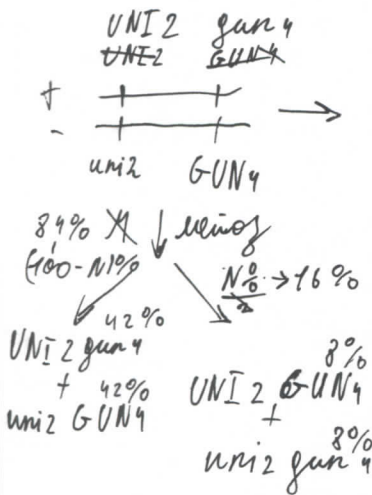 UNI2 gun4
UNI2 GUN4
+
-
uni2 GUN4
84%
(100-N)%
мейоз
N% → 16%
2
42%
UNI2 gun4
+ 42%
uni2 GUN4
8%
UNI2 GUN4
+
8%
uni2 gun4